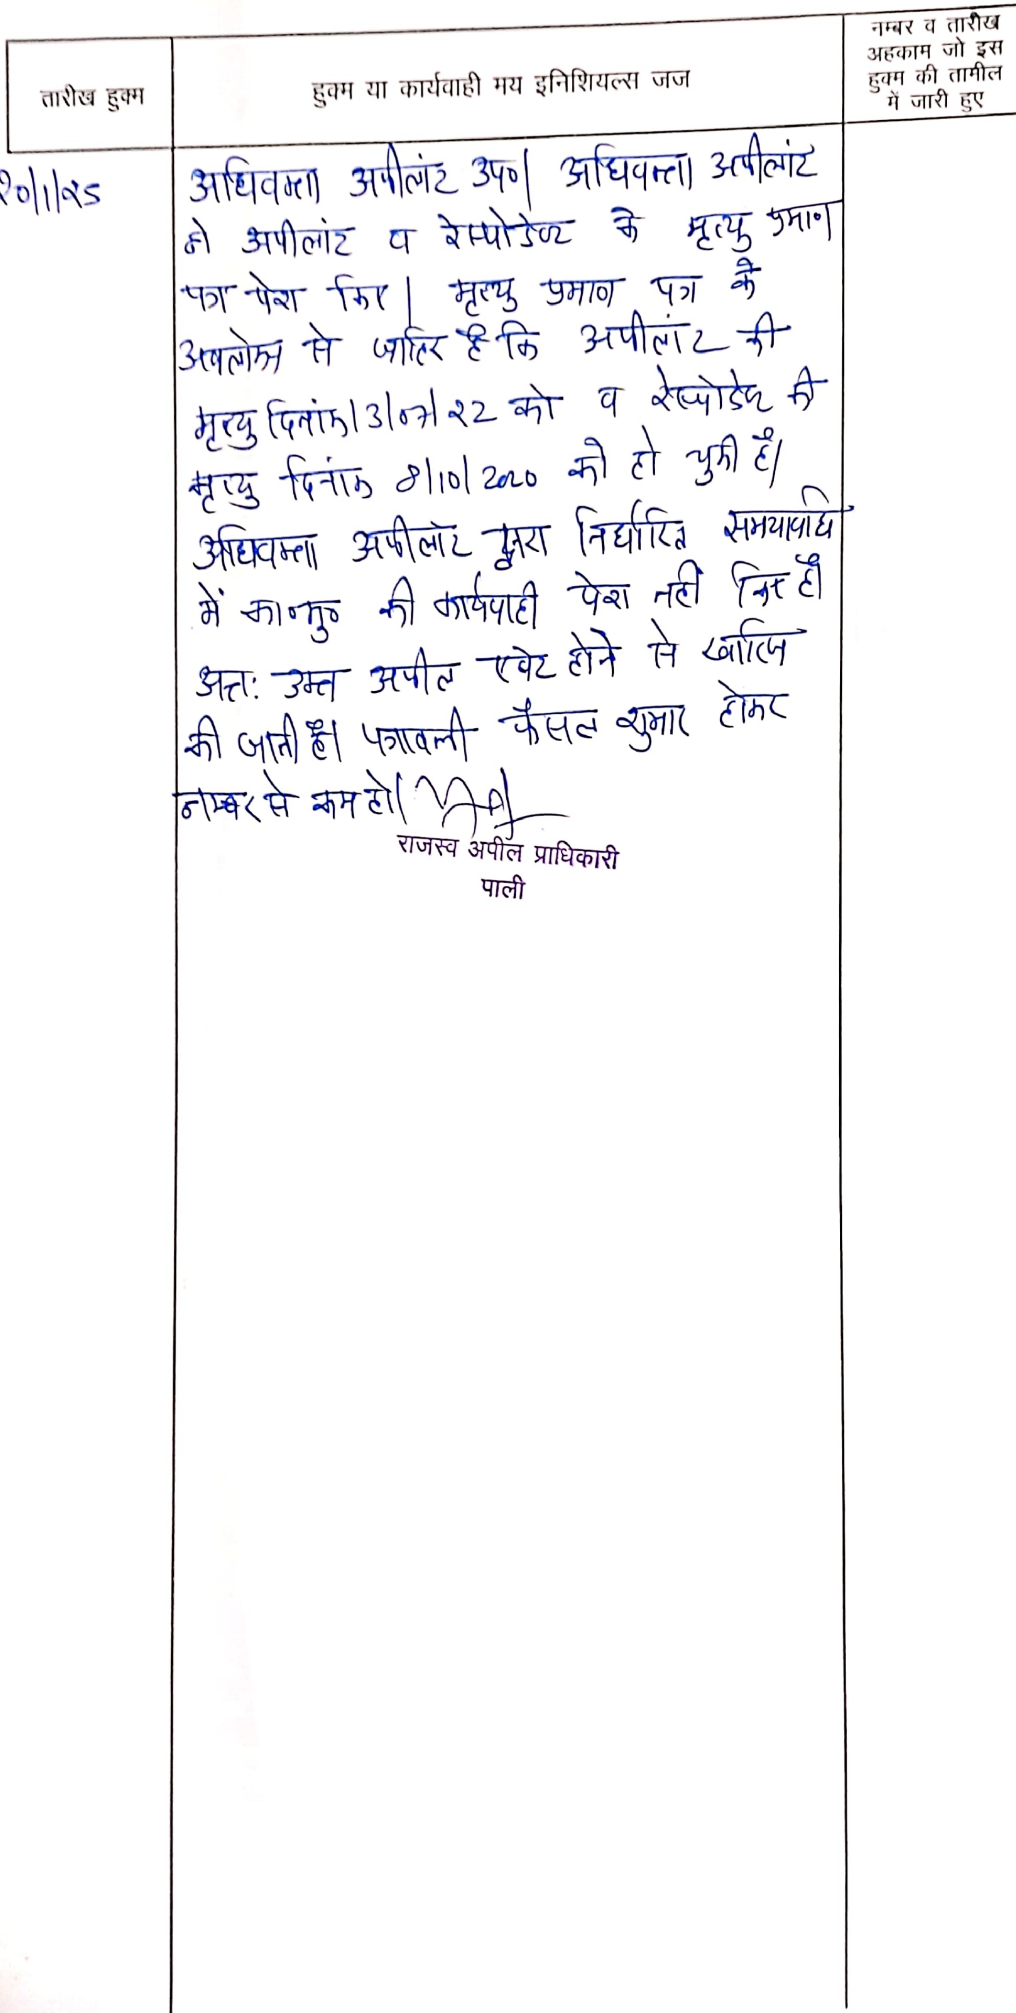 तारीख हुक्म
हुक्म या कार्यवाही मय इनिशियल्स जज
नम्बर व तारीख
अहकाम जो इस
हुक्म की तामील
में जारी हुए
20/1/25
अधिवक्ता अपीलांट उप०। अधिवक्ता अपीलांट
ने अपीलांट व रेस्पोडेण्ट के मृत्यु प्रमाण
पत्र पेश किए। मृत्यु प्रमाण पत्र के
अवलोकन से जाहिर है कि अपीलांट की
मृत्यु दिनांक 13/07/22 को व रेस्पोडेण्ट की
मृत्यु दिनांक 8/10/2020 को हो चुकी है।
अधिवक्ता अपीलांट द्वारा निर्धारित समयावधि
में का०मु० की कार्यवाही पेश नहीं किए है।
अतः उक्त अपील एबेट होने से खारिज
की जाती है। पत्रावली फैसल शुमार होकर
नम्बर से कम हो।
राजस्व अपील प्राधिकारी
पाली